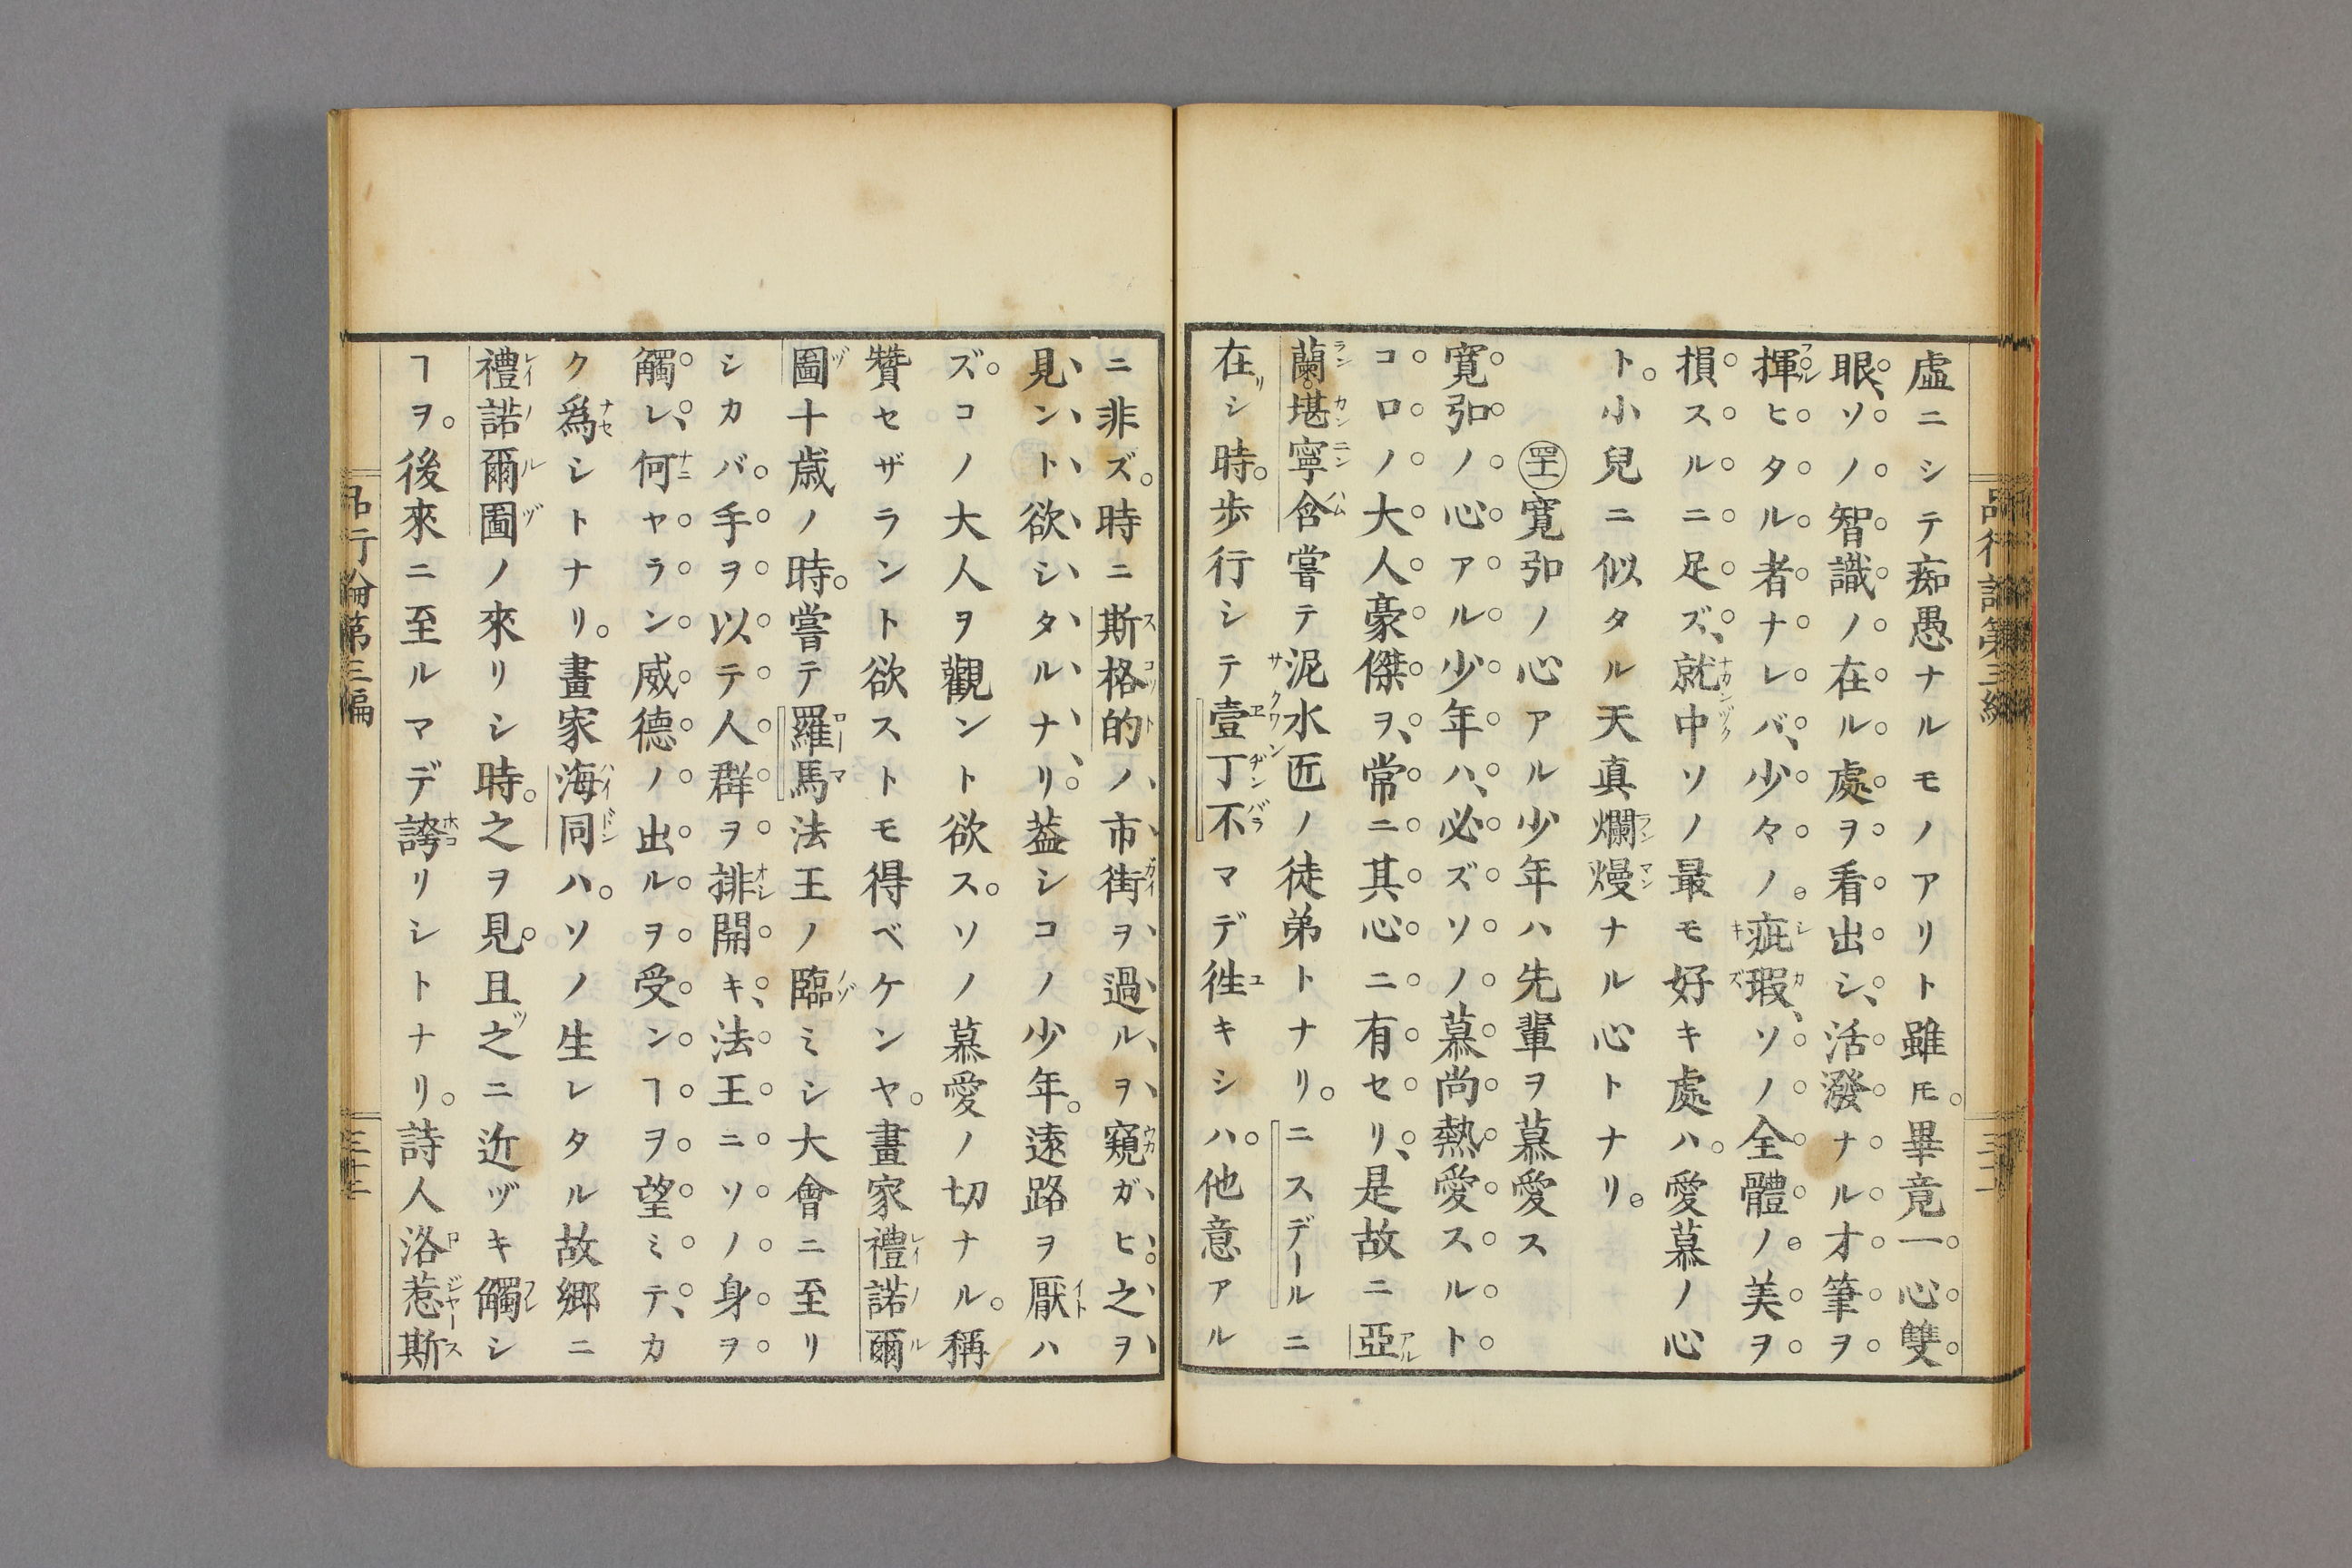 虚ニシテ痴愚ナルモノアリト雖𪜈。畢竟一心雙
眼、ソノ智識ノ在ル處ヲ看出シ、活潑ナル才筆ヲ
揮ヒタル者ナレバ、少々ノ疵瑕、ソノ全體ノ美ヲ
損スルニ足ズ、就中ソノ最モ好キ處ハ。愛慕ノ心
ト。小兒ニ似タル天真爛熳ナル心トナリ。
寛弘ノ心アル少年ハ先輩ヲ慕愛ス
寛弘ノ心アル少年ハ、必ズソノ慕尚熱愛スルト
コロノ大人豪傑ヲ、常ニ其心ニ有セリ、是故ニ亞
蘭堪寧含嘗テ泥水匠ノ徒弟トナリ。ニスデールニ
在シ時。歩行シテ壹丁不マデ徃キシハ。他意アル
ニ非ズ。時ニ斯格的ノ市街ヲ過ルヲ窺ガヒ。之ヲ
見ント欲シタルナリ。葢シコノ少年。遠路ヲ厭ハ
ズ。コノ大人ヲ觀ント欲ス。ソノ慕愛ノ切ナル。稱
贊セザラント欲ストモ得ベケンヤ。畫家禮諾爾
圖十歳ノ時。嘗テ羅馬法王ノ臨ミシ大會ニ至リ
シカバ。手ヲ以テ人群ヲ排開キ、法王ニソノ身ヲ
觸レ、何ヤラン威德ノ出ルヲ受ンヿヲ望ミテ、カ
ク爲シトナリ。畫家海同ハ。ソノ生レタル故郷ニ
禮諾爾圖ノ來リシ時。之ヲ見。且之ニ近ヅキ觸シ
ヿヲ。後來ニ至ルマデ誇リシトナリ。詩人洛惹斯
品行論第三編